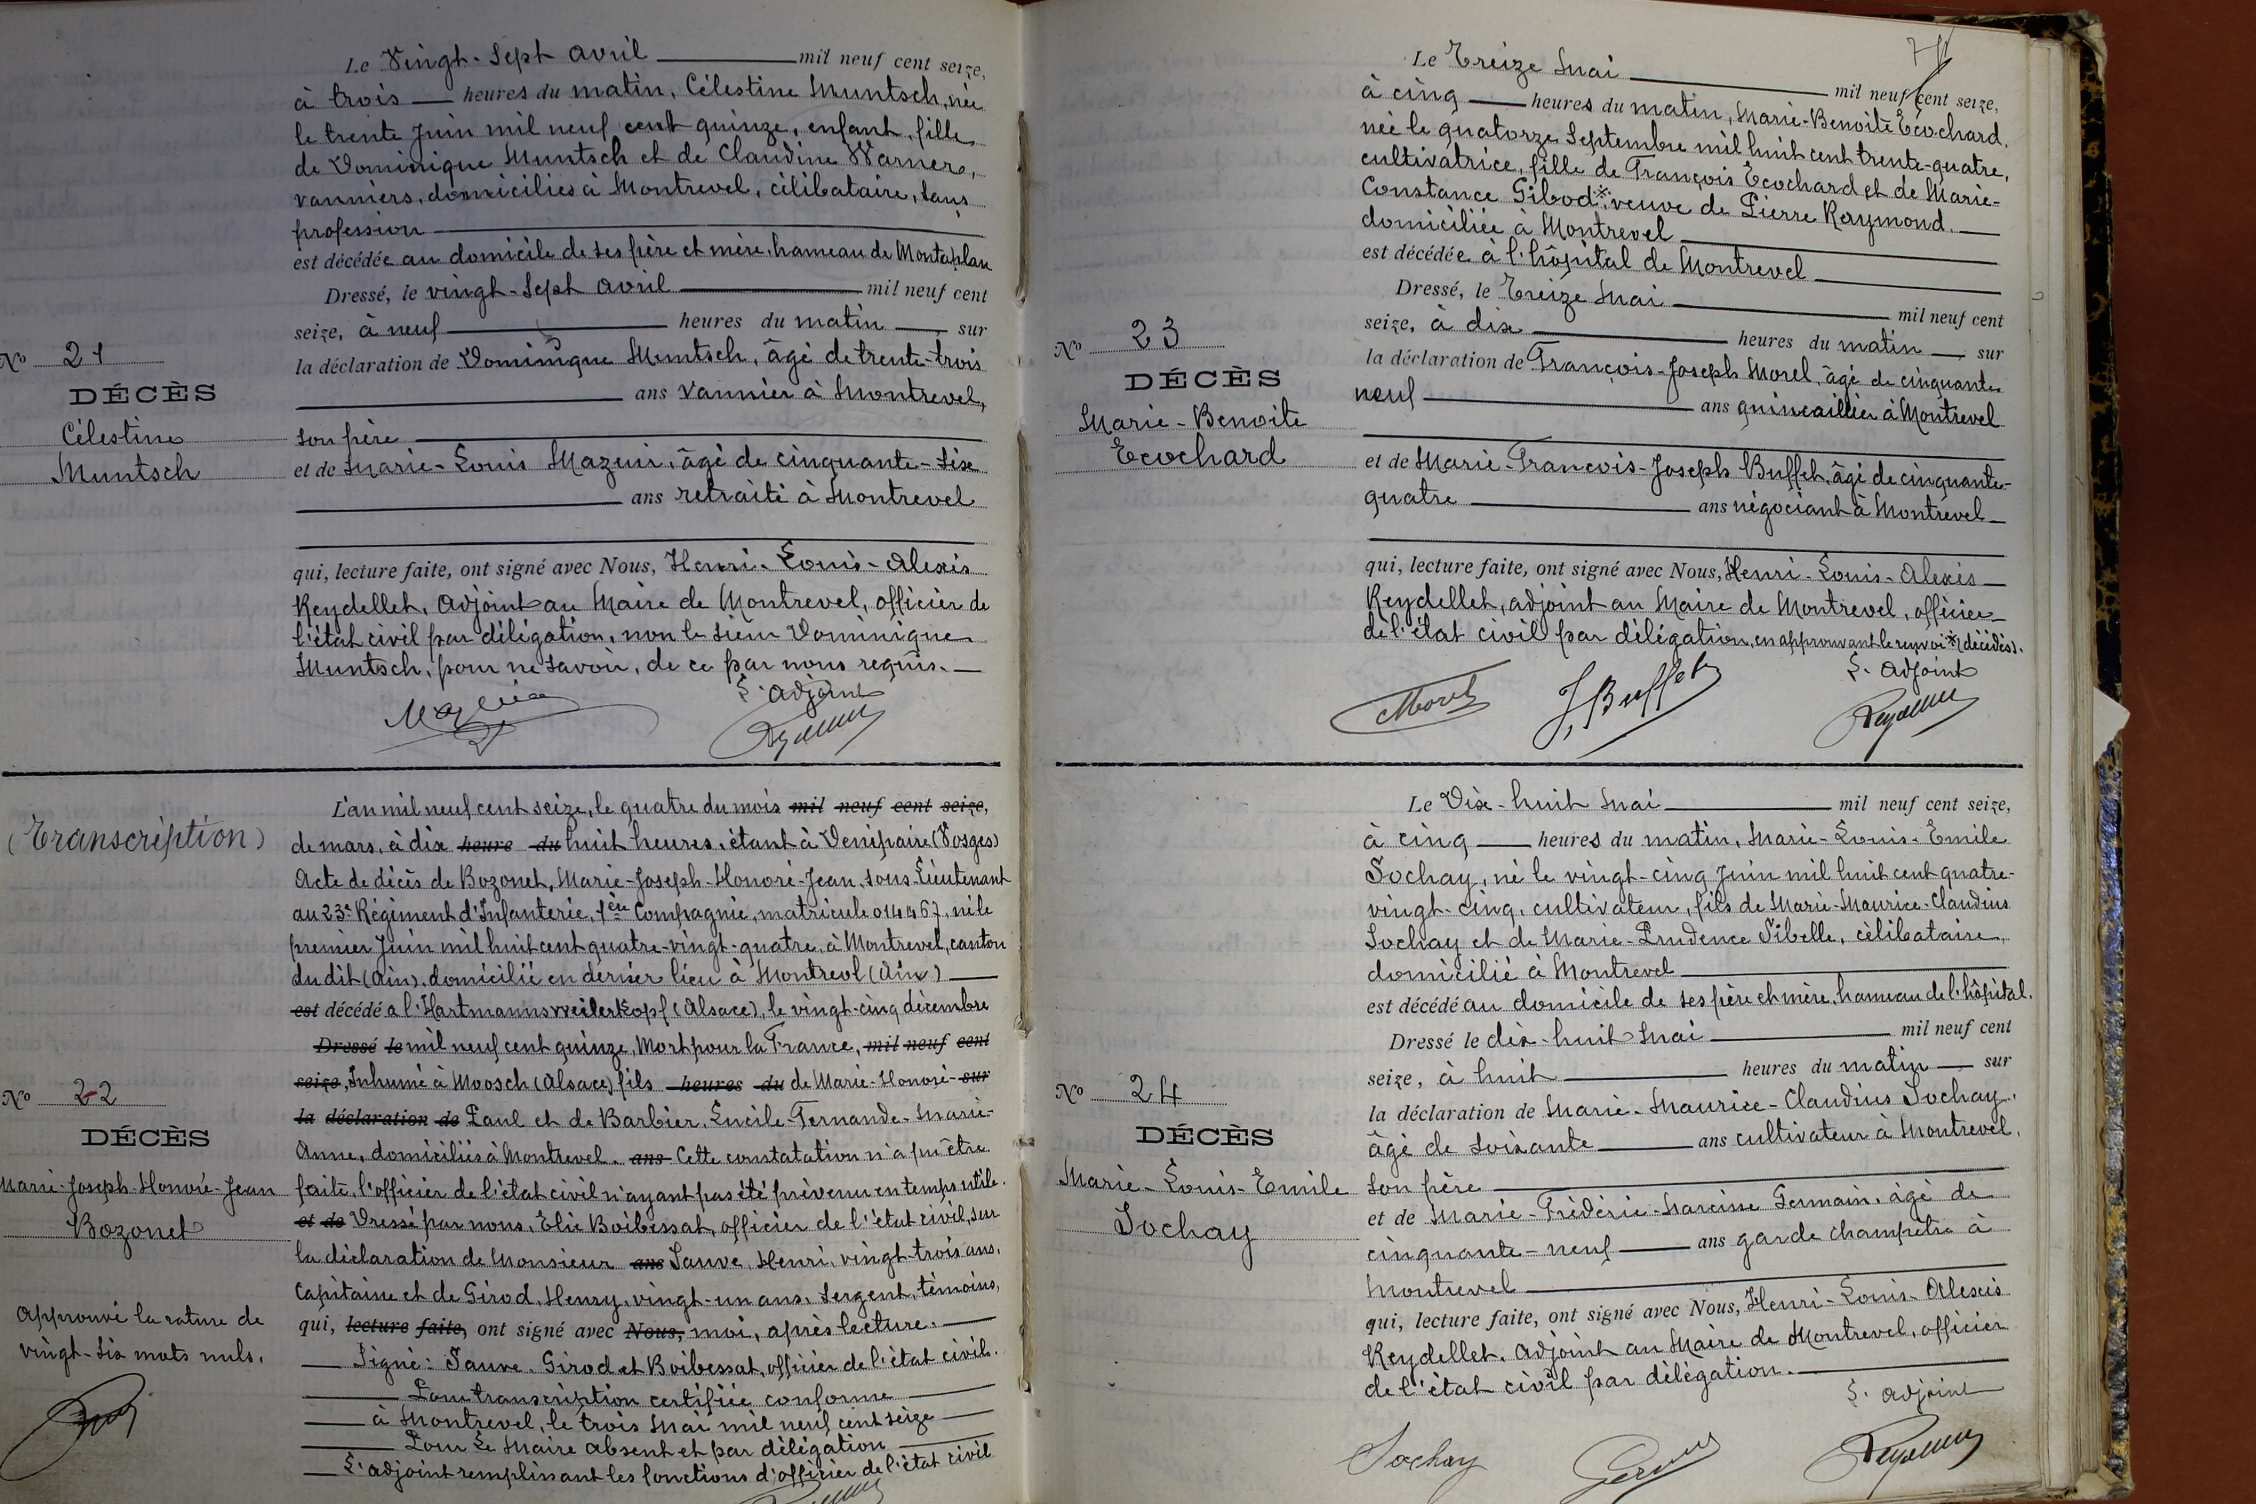 Le Vingt-Sept avril mil neuf cent seize,
à trois heures du matin, Célestine Muntsch, née
le trente Juin mil neuf cent quinze, enfant, fille
de Dominique Muntsch et de Claudine Warnero,
vanniers, domiciliés à Montrevel, célibataire, sans
profession
est décédée au domicile de ses père et mère, hameau de Montaplan
Dressé, le vingt-Sept avril mil neuf cent
seize, à neuf heures du matin, sur
la déclaration de Dominique Muntsch, âgé de trente-trois
ans Vannier à Montrevel,
son père
et de Marie-Louis Mazuir, âgé de cinquante-six
ans retraité à Montrevel
qui, lecture faite, ont signé avec Nous, Henri-Louis-Alexis
Reydellet, Adjoint au Maire de Montrevel, officier de
l'état civil par délégation, non le sieur Dominique
Muntsch, pour ne savoir, de ce par nous requis.
L'adjoint
Nº 21
DÉCÈS
Célestine
Muntsch
(Transcription)
L'an mil neuf cent seize, le quatre du mois mil neuf cent seize,
de mars, à dix heure du huit heures, étant à Denipaire (Vosges)
Acte de décès de Bozonet, Marie-Joseph-Honoré-Jean, sous-Lieutenant
au 23e Régiment d'Infanterie, 1ère Compagnie, matricule 014467, né le
premier Juin mil huit cent quatre-vingt-quatre, à Montrevel, canton
du dit (Ain), domicilié en dernier lieu à Montrevl (Ain)
est décédé a l'Hartmannsweilerkopf (Alsace), le vingt-cinq décembre
Dressé le mil neuf cent quinze, Mort pour la France, mil neuf cent
seize, Inhumé à Moosch (Alsace) fils heures du de Marie-Honoré- sur
la déclaration de Paul et de Barbier, Lucile-Fernande-Marie-
Anne, domiciliés à Montrevel. ans Cette constatation n'a pu être
faite, l'officier de l'état civil n'ayant pas été prévenu en temps utile.
et de Dressé par nous, Elie Boibessat, officier de l'état civil, sur
la déclaration de Monsieur ans Sauve, Henri, vingt-trois ans,
Capitaine et de Girod, Henry, vingt-un ans, Sergent, témoins,
qui, lecture faite, ont signé avec Nous, moi, après lecture.
Signé: Sauve. Girod et Boibessat, officier de l'état civil.
Pour transcription certifiée conforme
à Montrevel, le trois Mai mil neuf cent seize
Pour Le Maire absent et par délégation
L'adjoint remplissant les fonctions d'officier de l'état civil
Nº 22
DÉCÈS
Marie-Joseph-Honoré-Jean
Bozonet
Approuvé la rature de
vingt-six mots nuls.
Le Treize Mai mil neuf cent seize,
à cinq heures du matin, Marie-Benoite Ecochard,
née le quatorze Septembre mil huit cent trente-quatre,
cultivatrice, fille de François Ecochard et de Marie-
Constance Gibod*, veuve de Pierre Raymond.
domiciliée à Montrevel
est décédée à l'hôpital de Montrevel
Dressé, le Treize Mai mil neuf cent
seize, à dix heures du matin, sur
la déclaration de François-Joseph Morel, âgé de cinquante
neuf ans quincaillier à Montrevel
et de Marie-François-Joseph Buffet, âgé de cinquante-
quatre ans négociant à Montrevel
qui, lecture faite, ont signé avec Nous, Henri-Louis-Alexis
Reydellet, adjoint au Maire de Montrevel, officier
de l'état civil par délégation, en approuvant le renvoi * (décédés).
L'adjoint
Morel J. Buffet
Nº 23
DÉCÈS
Marie-Benoite
Ecochard
Le Dix-huit Mai mil neuf cent seize,
à cinq heures du matin, Marie-Louis-Emile
Sochay, né le vingt-cinq Juin mil huit cent quatre-
vingt-cinq, cultivateur, fils de Marie-Maurice-Claudius
Sochay et de Marie-Prudence Sibelle, célibataire,
domicilié à Montrevel
est décédé au domicile de ses père et mère, hameau de l'hôpital.
Dressé le dix-huit Mai mil neuf cent
seize, à huit heures du matin sur
la déclaration de Marie-Maurice-Claudius Sochay,
âgé de soixante ans cultivateur à Montrevel,
son père
et de Marie-Frédéric-Narcisse Germain, âgé de
cinquante-neuf ans garde champêtre à
Montrevel
qui, lecture faite, ont signé avec Nous, Henri-Louis-Alexis
Reydellet, Adjoint au Maire de Montrevel, officier
de l'état civil par délégation.
L'adjoint
Sochay
Nº 24
DÉCÈS
Marie-Louis-Emile
Sochay